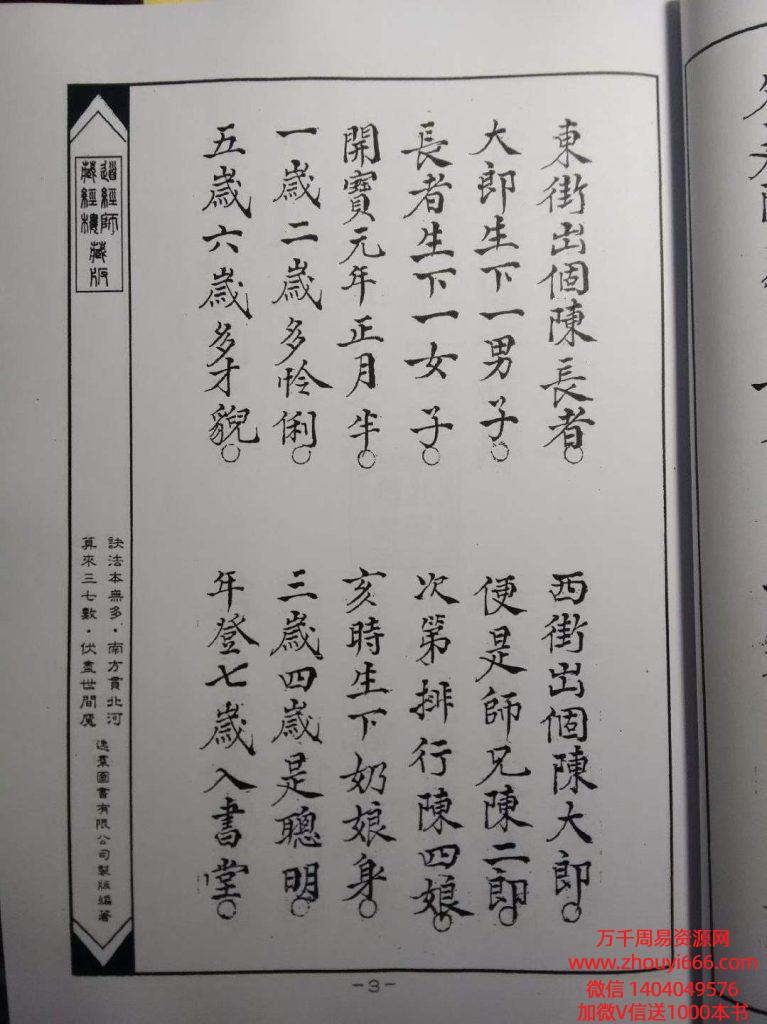 東街出個陳長者○　西街出個陳大郎○
大郎生下一男子○　便是師兄陳二郎○
長者生下一女子○　次第排行陳四娘○
開寶元年正月半○　亥時生下奶娘身○
一歲二歲多怜俐○　三歲四歲是聰明○
五歲六歲多才貌○　年登七歲入書堂○
道經師
藏經樓藏版
訣法本無多·南方貫北河
算來三七數·伏盡世間魔
逸羣圖書有限公司製版編著
-3-
万千周易资源网
www.zhouyi666.com
微信 1404049576
加微V信送1000本书